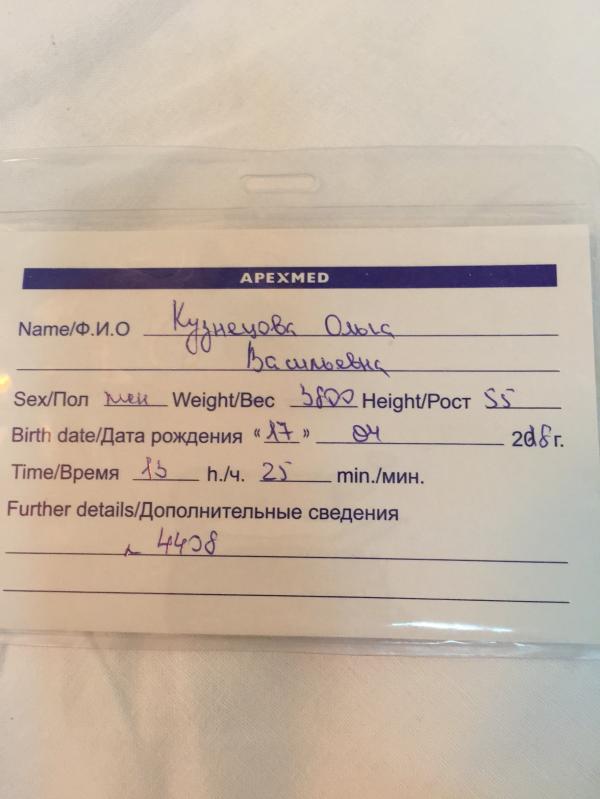 APEXMED
Name/Ф.И.О Кузнецова Ольга
Васильевна
Sex/Пол жен Weight/Вес 3800 Height/Рост 55
Birth date/Дата рождения « 17 » 04 2018 г.
Time/Время 13 h./ч. 25 min./мин.
Further details/Дополнительные сведения
4408